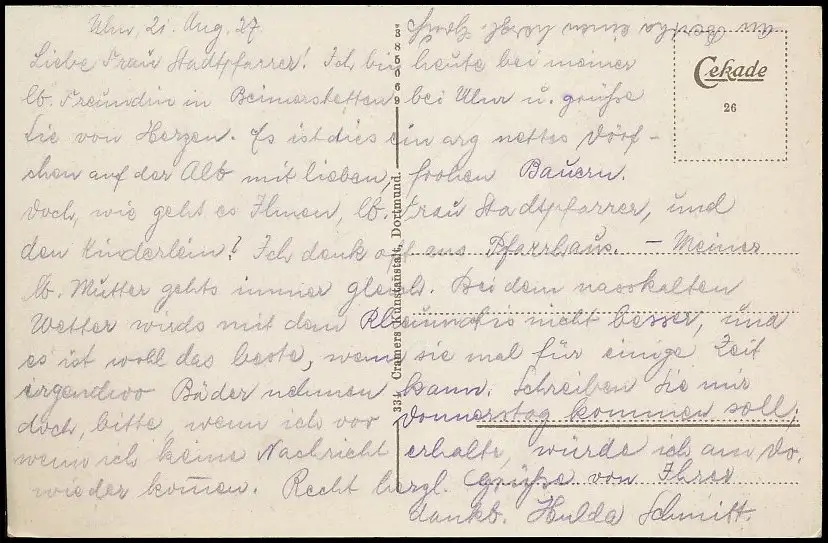 Ulm, 21. Aug. 27.
Liebe Frau Stadtpfarrer! Ich bin heute bei meiner
lb. Freundin in Beimerstetten bei Ulm u. grüße
Sie von Herzen. Es ist dies ein arg nettes Dörf-
chen auf der Alb mit lieben, frohen Bauern.
Doch, wie geht es Ihnen, lb. Frau Stadtpfarrer, und
den Kinderlein? Ich denk oft ans Pfarrhaus. – Meiner
lb. Mutter gehts immer gleich. Bei dem nasskalten
Wetter wirds mit dem Rheumatis nicht besser, und
es ist wohl das beste, wenn sie mal für einige Zeit
irgendwo Bäder nehmen kann. Schreiben Sie mir
doch, bitte, wenn ich vor Donnerstag kommen soll;
wenn ich keine Nachricht erhalte, würde ich am Do.
wieder kommen. Recht herzl. Grüße von Ihrer
dankb. Hulda Schmitt.
an Bertha einen
Cekade
26
3850369
334 Cramers Kunstanstalt, Dortmund.